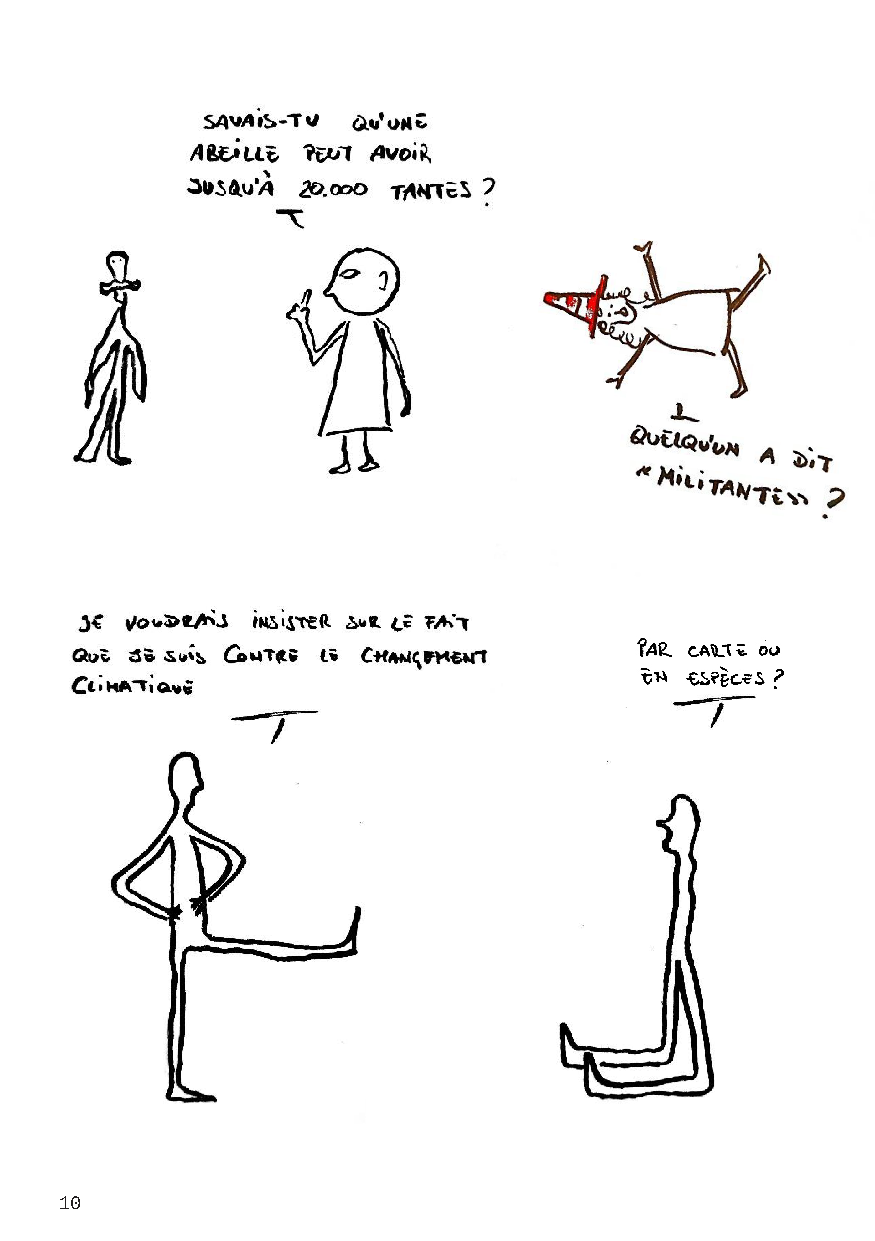 SAVAIS-TU QU'UNE
ABEILLE PEUT AVOIR
JUSQU'À 20.000 TANTES ?
QUELQU'UN A DIT
« MILITANTES» ?
JE VOUDRAIS INSISTER SUR LE FAIT
QUE JE SUIS CONTRE LE CHANGEMENT
CLIMATIQUE
PAR CARTE OU
EN ESPÈCES ?
10